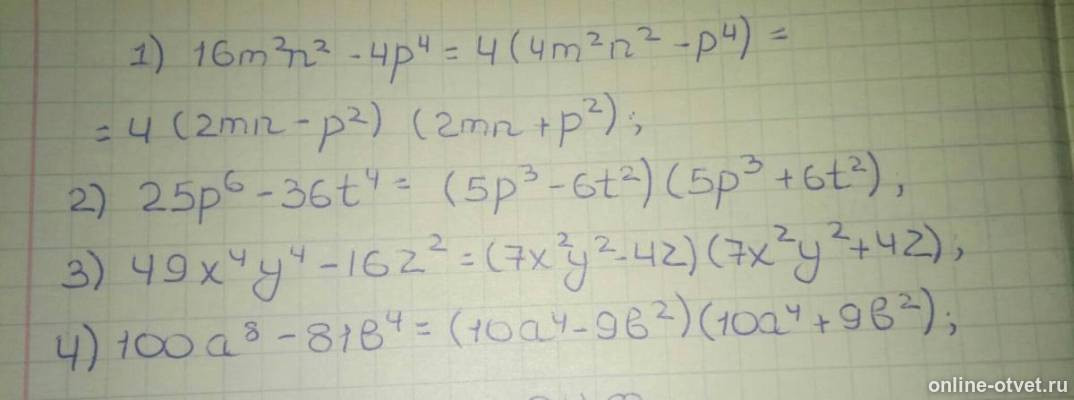 1) 16m²n² - 4p⁴ = 4(4m²n² - p⁴) =
= 4(2mn - p²) (2mn + p²);
2) 25p⁶ - 36t⁴ = (5p³ - 6t²)(5p³ + 6t²),
3) 49x⁴y⁴ - 16z² = (7x²y² - 4z)(7x²y² + 4z),
4) 100a⁸ - 81в⁴ = (10a⁴ - 9в²)(10a⁴ + 9в²);
online-otvet.ru